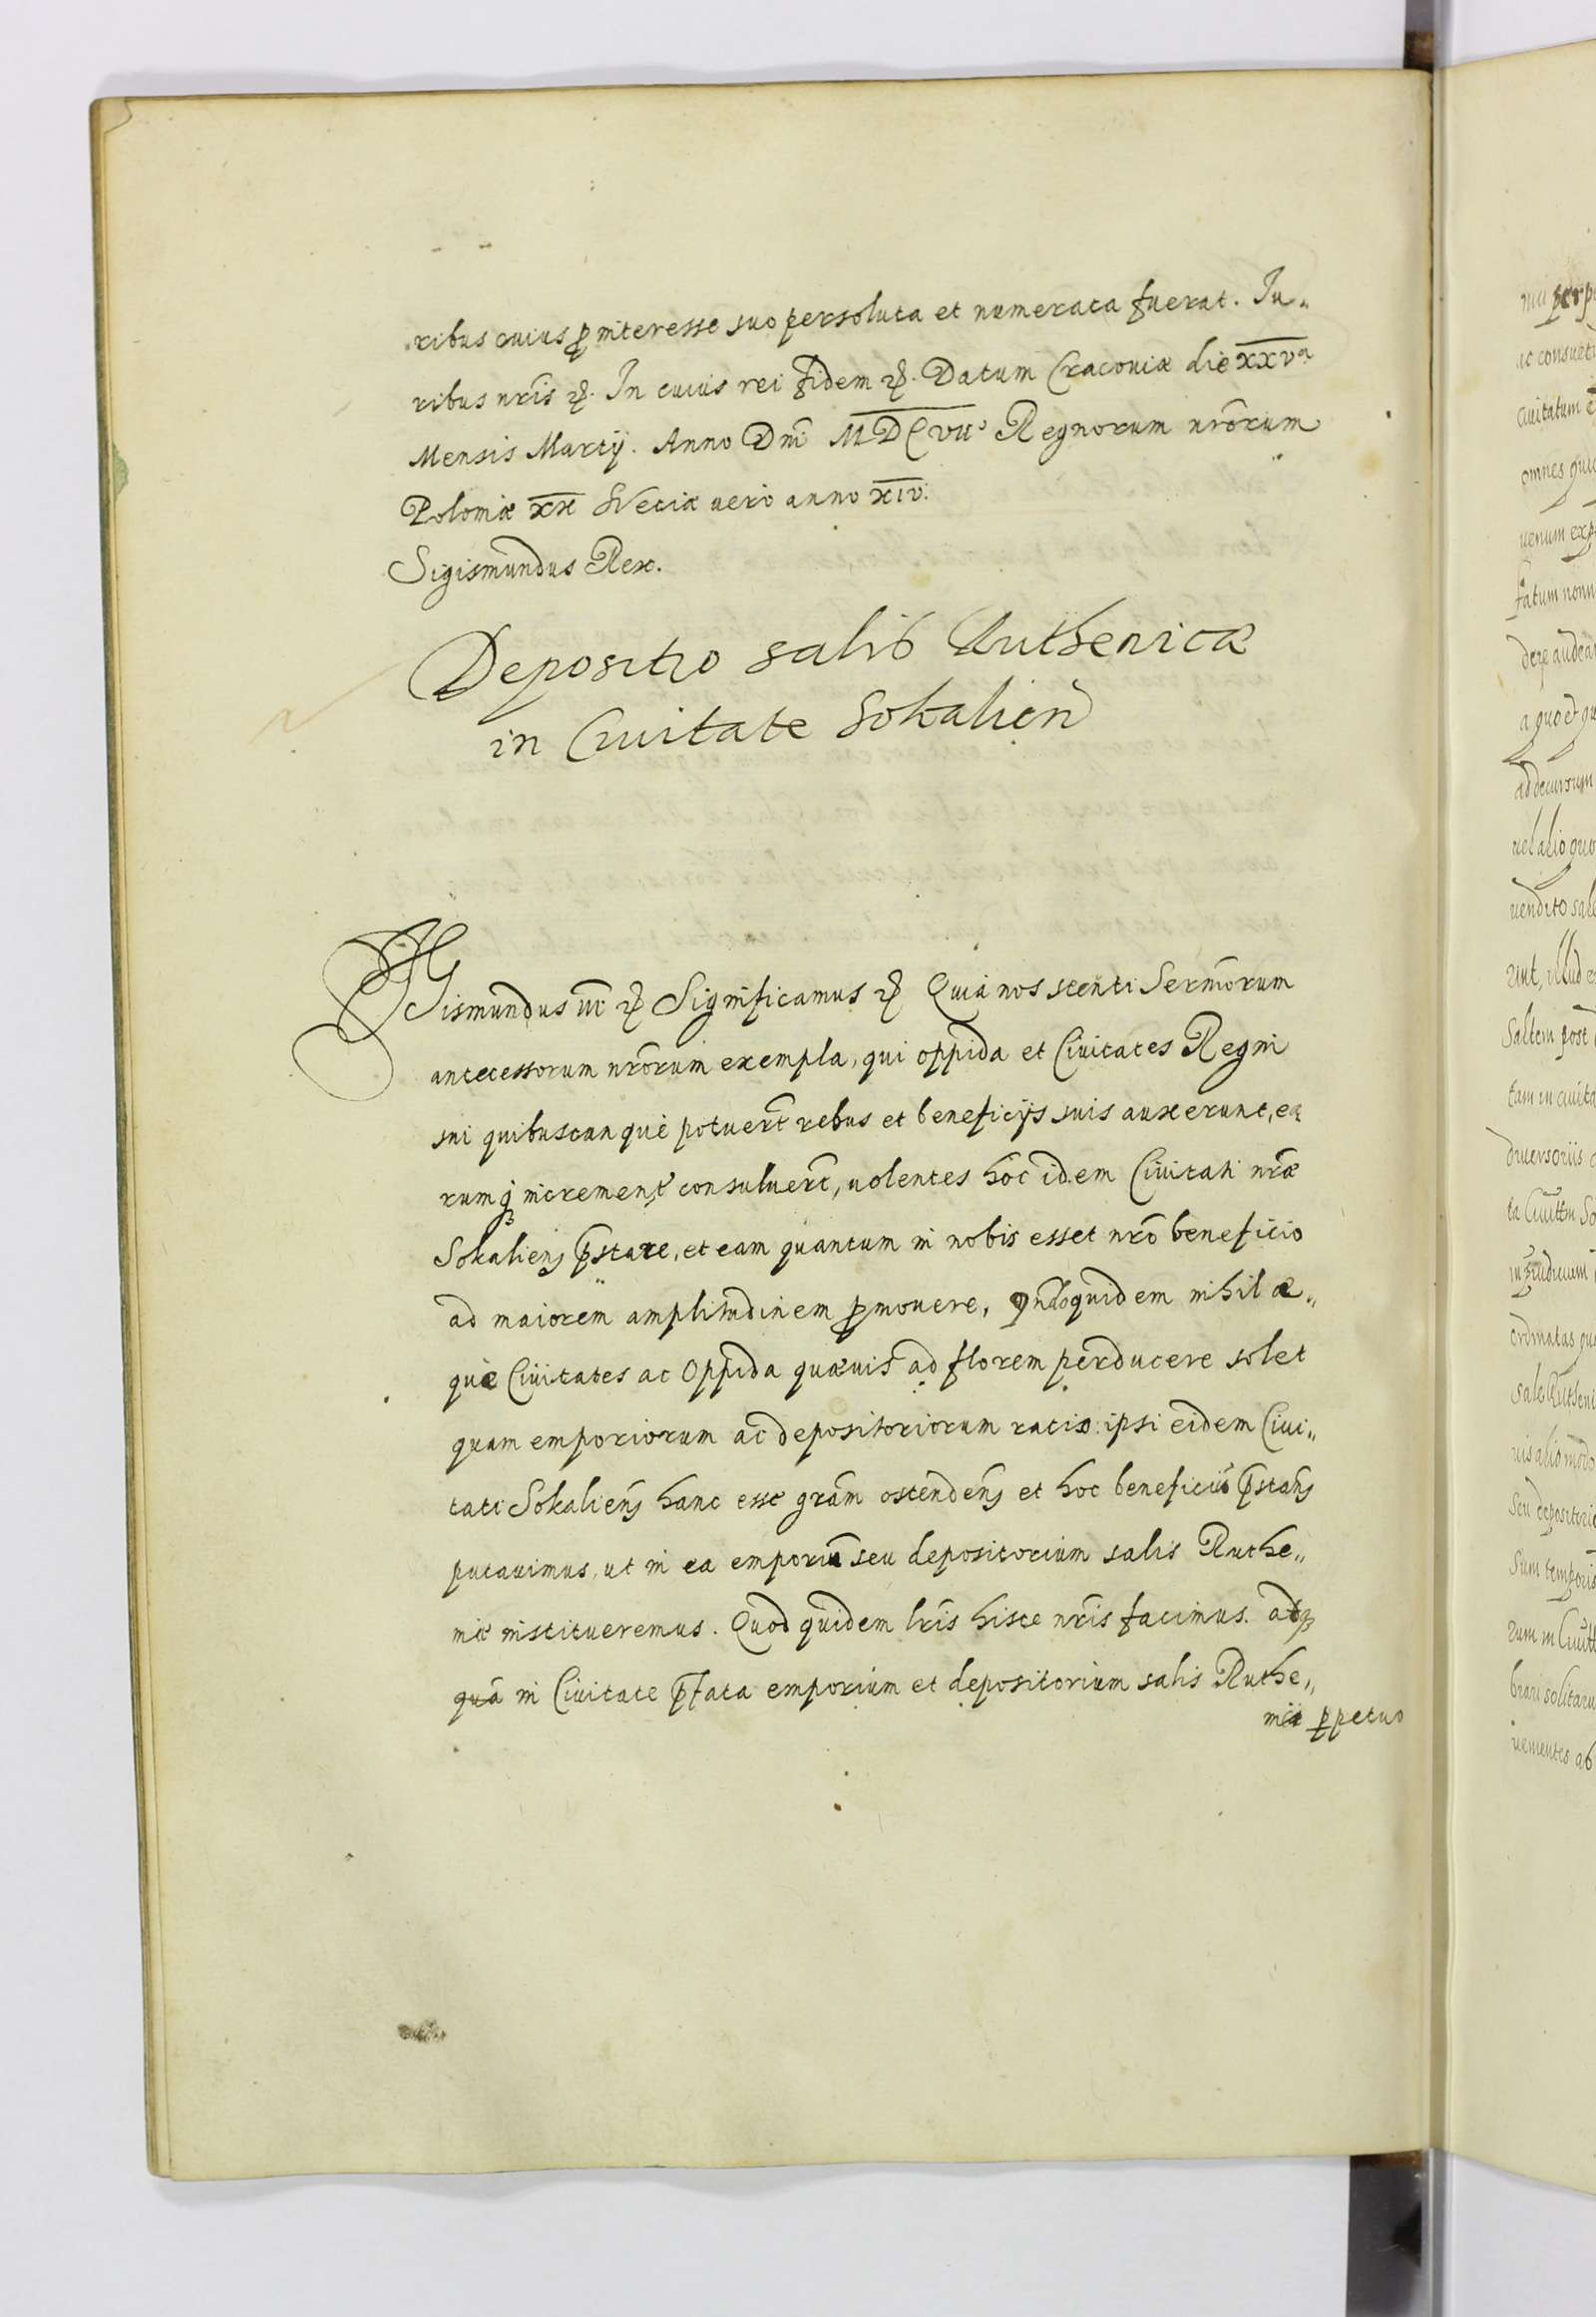 ribus cuius ꝓ interesse suo persoluta et numerata fuerat. Iu„
ribus nr̄is ꝛc̄. In cuius rei fidem ꝛc̄. Datum Cracouiæ die XXVa
Mensis Martij. Anno Dnī MDCVIIo Regnorum nrōrum
Poloniæ XX SVeciæ uero anno XIV.
Sigismundus Rex.
Depositio salis Ruthenicæ
in Ciuitate Sokalien̄
Sigismundus III ꝛc̄ Significamus ꝛc̄ Quia nos secuti Serm̄orum
antecessorum nrōrum exempla, qui oppida et Ciuitates Regni
sui quibuscunque potuerūt rebus et beneficijs suis auxerunt, ea
rumqꝫ increment consuluert̄, uolentes hoc idem Ciuitati nrǣ
Sokalien̄ p̄stare, et eam quantum in nobis esset nrō beneficio
ad maiorem amplitudinem ꝓmouere, qn̄doquidem nihil æ„
què Ciuitates ac Oppida quæuis ad florem perducere solet
quam emporiorum ac depositoriorum ratio: ipsi eidem Ciui„
tati Sokalien̄ hanc esse grām ostenden̄ et hoc beneficiū p̄stan̄
putauimus, ut in ea emporiū seu depositorium salis Ruthe„
niæ institueremus. Quod quidem lrīs hisce nrīs facimus. atqꝫ
quā in Ciuitate p̄fata emporium et depositorium salis Ruthe„
niæ ꝑpetuo
mci perp
ac consuet
Ciuitatum
omnes
uenum exp
fatum nonn
dere audea
a quo et qu
ad decursum
uel alio quo
uendito sal
rint, illud
Saltem post
tam in ciuita
diuersoriis
ta Ciuittm So
ordinatas qu
sale Rutheni
uis alio modo
seu depositorio
sum temporis
rum in Ciuitt
brari solitaru
uenientes ab